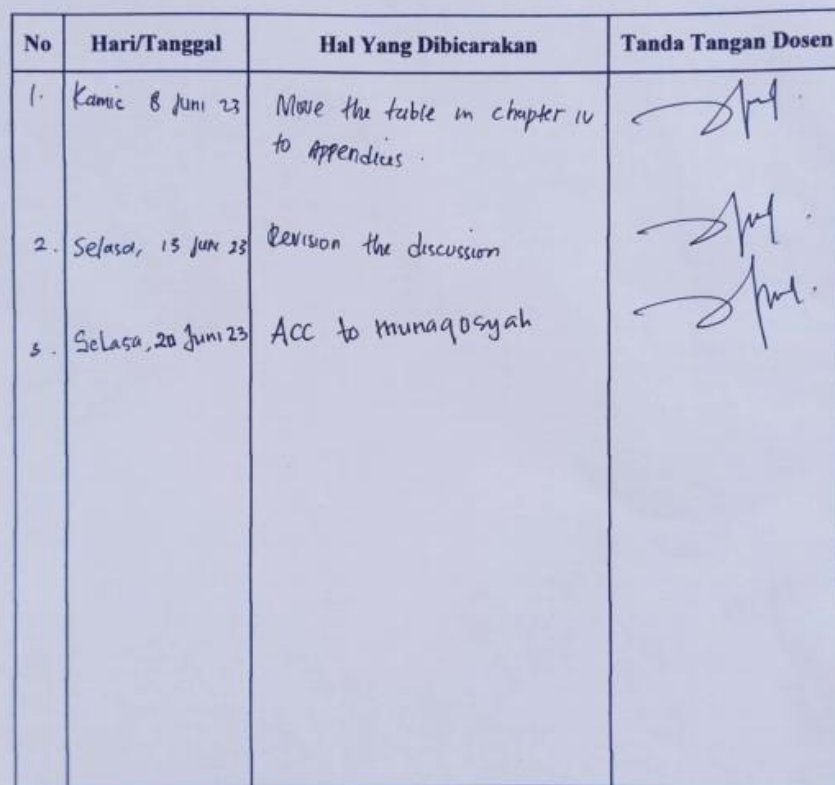 No Hari/Tanggal Hal Yang Dibicarakan Tanda Tangan Dosen
1. Kamis 8 Juni 23 Move the table in chapter IV
to Appendices.
2. Selasa, 13 Juni 23 Revision the discussion
3. Selasa, 20 Juni 23 ACC to munaqosyah